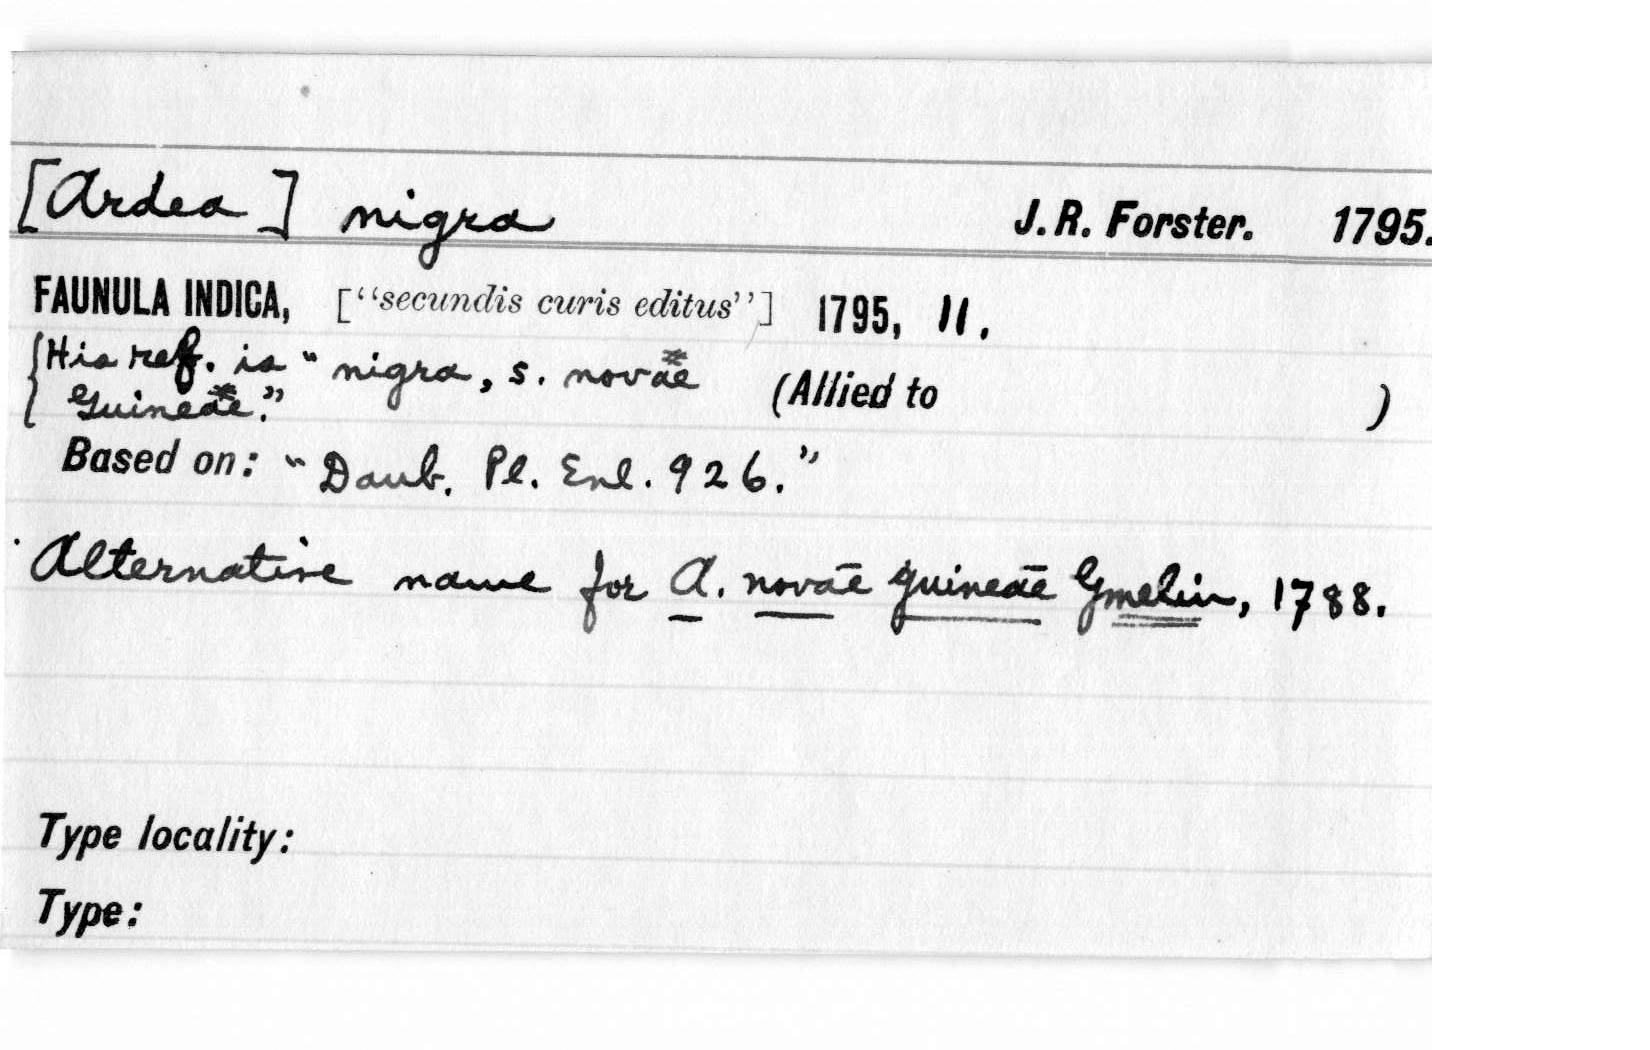 [Ardea] nigra J. R. Forster. 1795.
FAUNULA INDICA, ["secundis curis editus"] 1795, 11.
{His ref. is "nigra, s. novae
Guineae." (Allied to )
Based on: "Daub. Pl. Enl. 926."
Alternative name for A. novae guineae Gmelin, 1788.
Type locality:
Type: